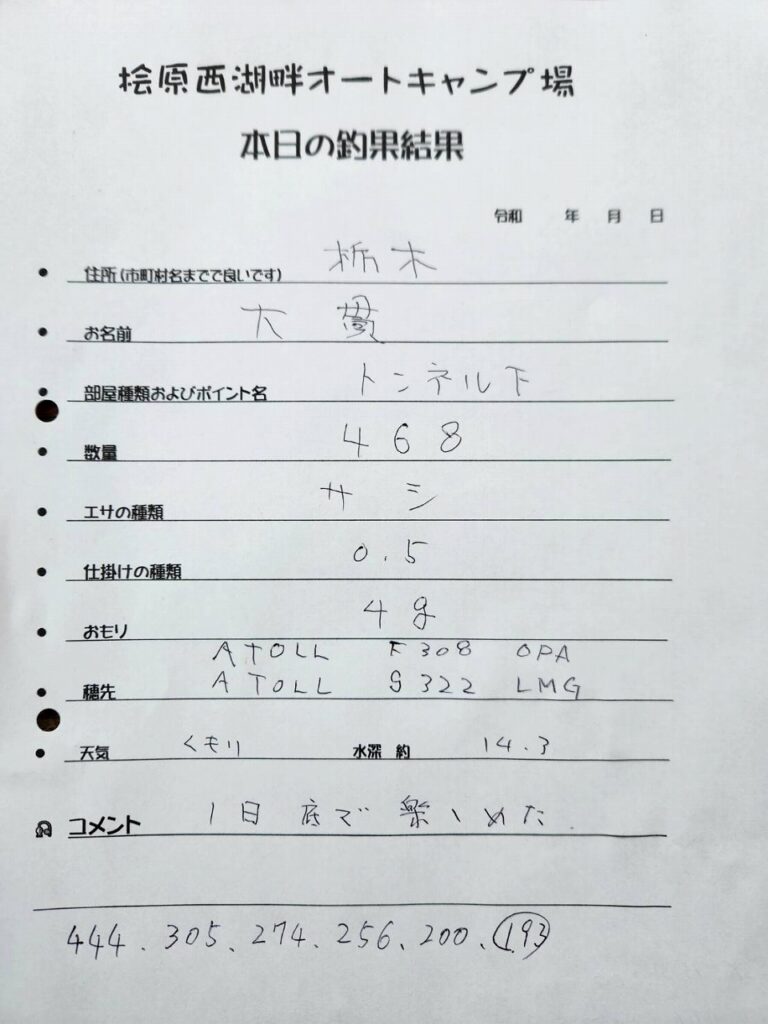 桧原西湖畔オートキャンプ場
本日の釣果結果
令和 年 月 日
住所(市町村名までで良いです) 栃木
お名前 大貫
部屋種類およびポイント名 トンネル下
数量 468
エサの種類 サシ
仕掛けの種類 0.5
おもり 4g
ATOLL F308 OPA
穂先 ATOLL S322 LMG
天気 くもり 水深 約 14.3
コメント 1日底で楽しめた
444.305.274.256.200.193